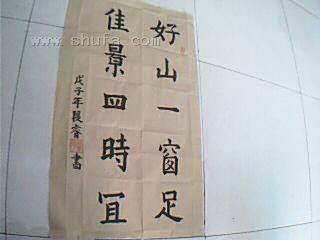 好山一窗足
佳景四時宜
戊子年段睿書
www.shufa.com